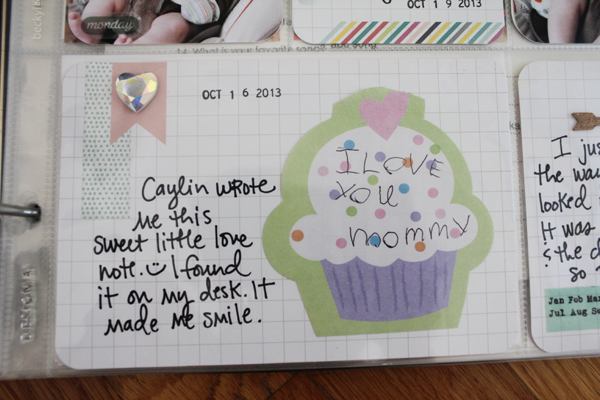 monday
OCT 1 9 2013
14. What is your favorite song?
OCT 1 6 2013
Caylin wrote
me this
sweet little love
note. I found
it on my desk. It
made me smile.
I LOVE
YOU
mommy
I jus
the wa
looked
it was
& the d
so
Jan Feb Mar
Jul Aug Se